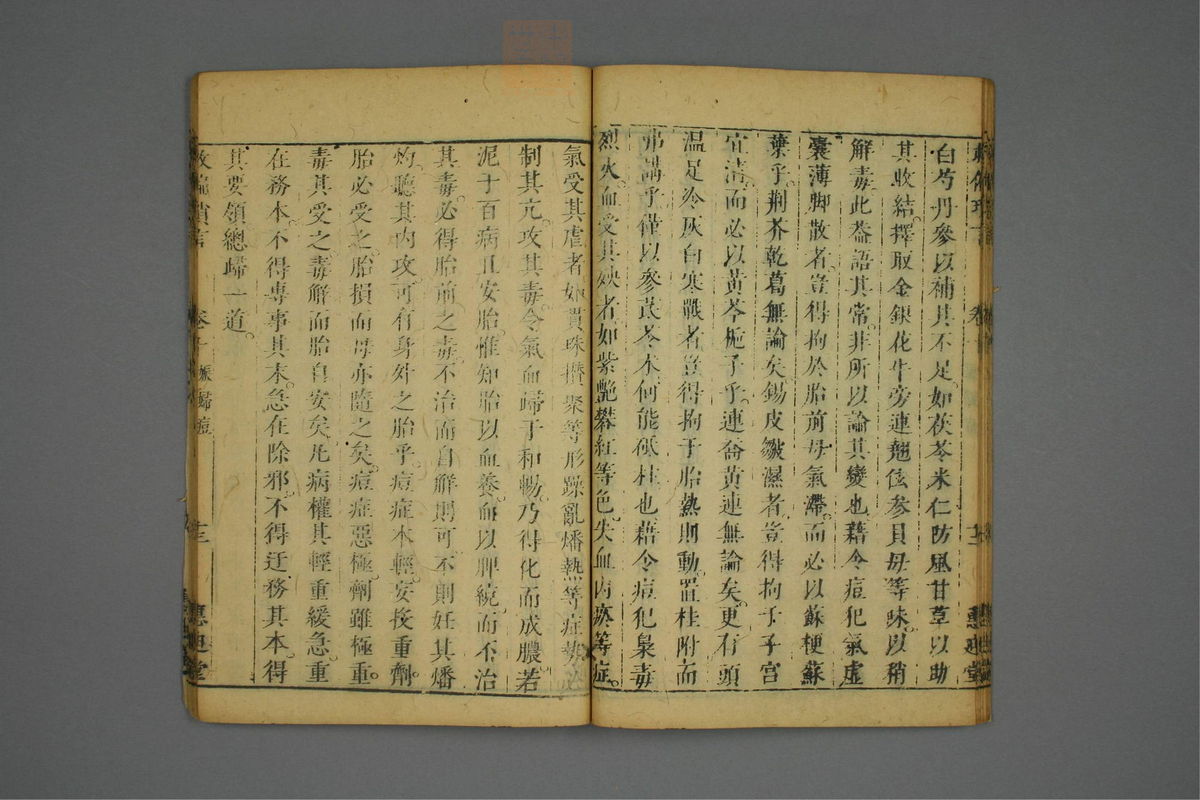 白芍丹參以補其不足如茯苓米仁防風甘草以助
其收結擇取金銀花牛旁連翹伭參貝母等味以稍
解毒此葢語其常非所以論其變也藉令痘犯氣虛
囊薄脚散者豈得拘於胎前母氣滯而必以蘇梗蘇
葉乎荆芥乾葛無論矣錫皮皺濕者豈得拘于子宮
宜清而必以黃芩梔子乎連翹黃連無論矣更有頭
温足冷灰白寒戰者豈得拘于胎熱則動置桂附而
弗講乎僅以參芪苓术何能砥柱也藉令痘犯梟毒
烈火血受其殃者如紫艷礬紅等色失血内瘀等症
氣受其虐者如貫珠攢聚等形躁亂燔熱等症勢必
制其亢攻其毒令氣血歸于和暢乃得化而成膿若
泥于百病且安胎惟知胎以血養血以脾統而不治
其毒必得胎前之毒不治而自解則可不則妊其燔
灼聽其内攻可有身外之胎乎痘症本輕妄投重劑
胎必受之胎損而母亦隨之矣痘症惡極劑雖極重
毒其受之毒解而胎自安矣凡病權其輕重緩急重
在務本不得專事其末急在除邪不得迂務其本得
其要領總歸一道
救偏瑣言 卷十 娠婦痘 十三 惠迪堂